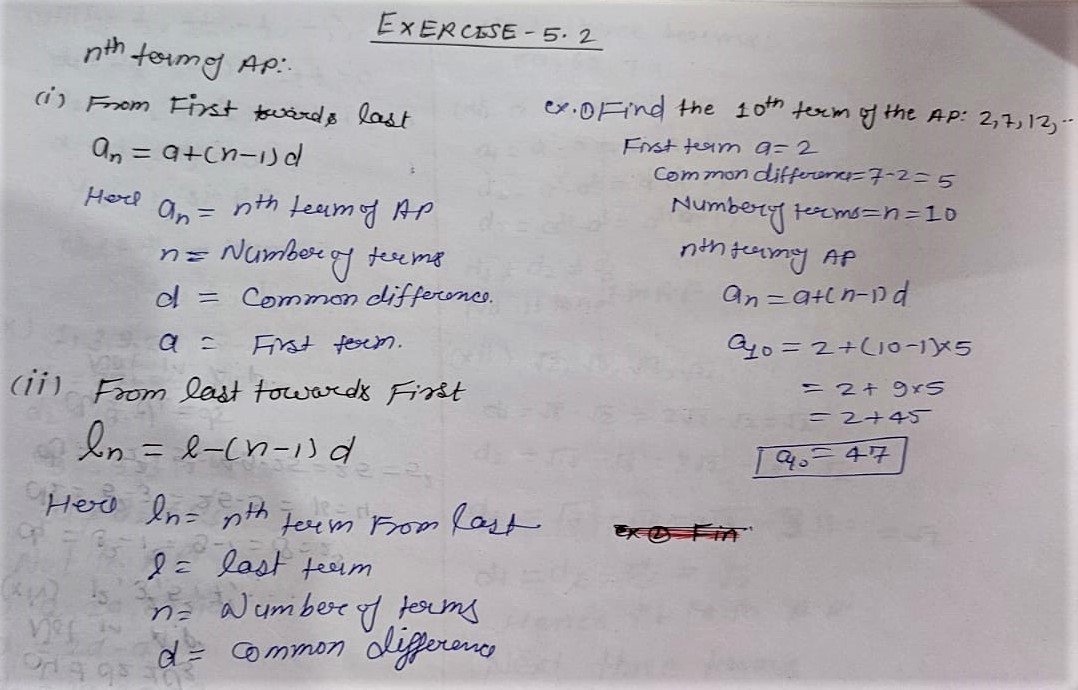 EXERCISE - 5.2
nth term of AP:-
(i) From First towards last
an = a+(n-1)d
Here an = nth term of AP
n = Number of terms
d = Common difference.
a = First term.
(ii) From last towards First
ln = l-(n-1)d
Here ln = nth term From last
l = last term
n = Number of terms
d = common difference
ex.① Find the 10th term of the AP: 2,7,12,..
First term a = 2
Common difference = 7-2 = 5
Number of terms = n = 10
nth term of AP
an = a+(n-1)d
a10 = 2+(10-1)×5
= 2+ 9×5
= 2+45
a10 = 47
ex ② Fin